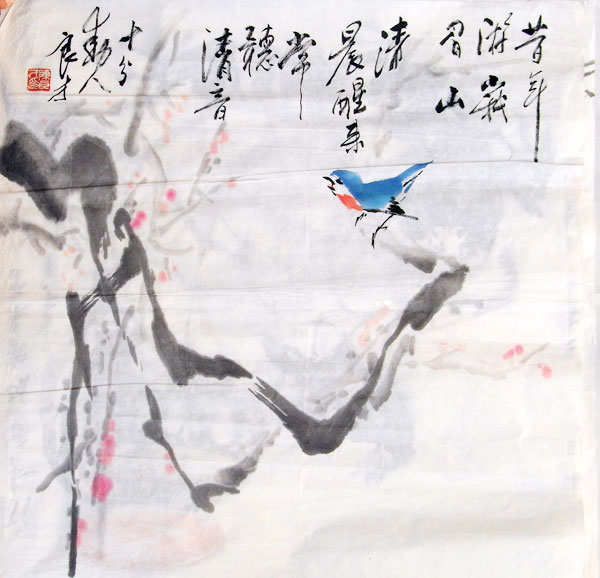 昔年
游峩
眉山
清
晨醒来
常
聽
清音
十分
動人
良才